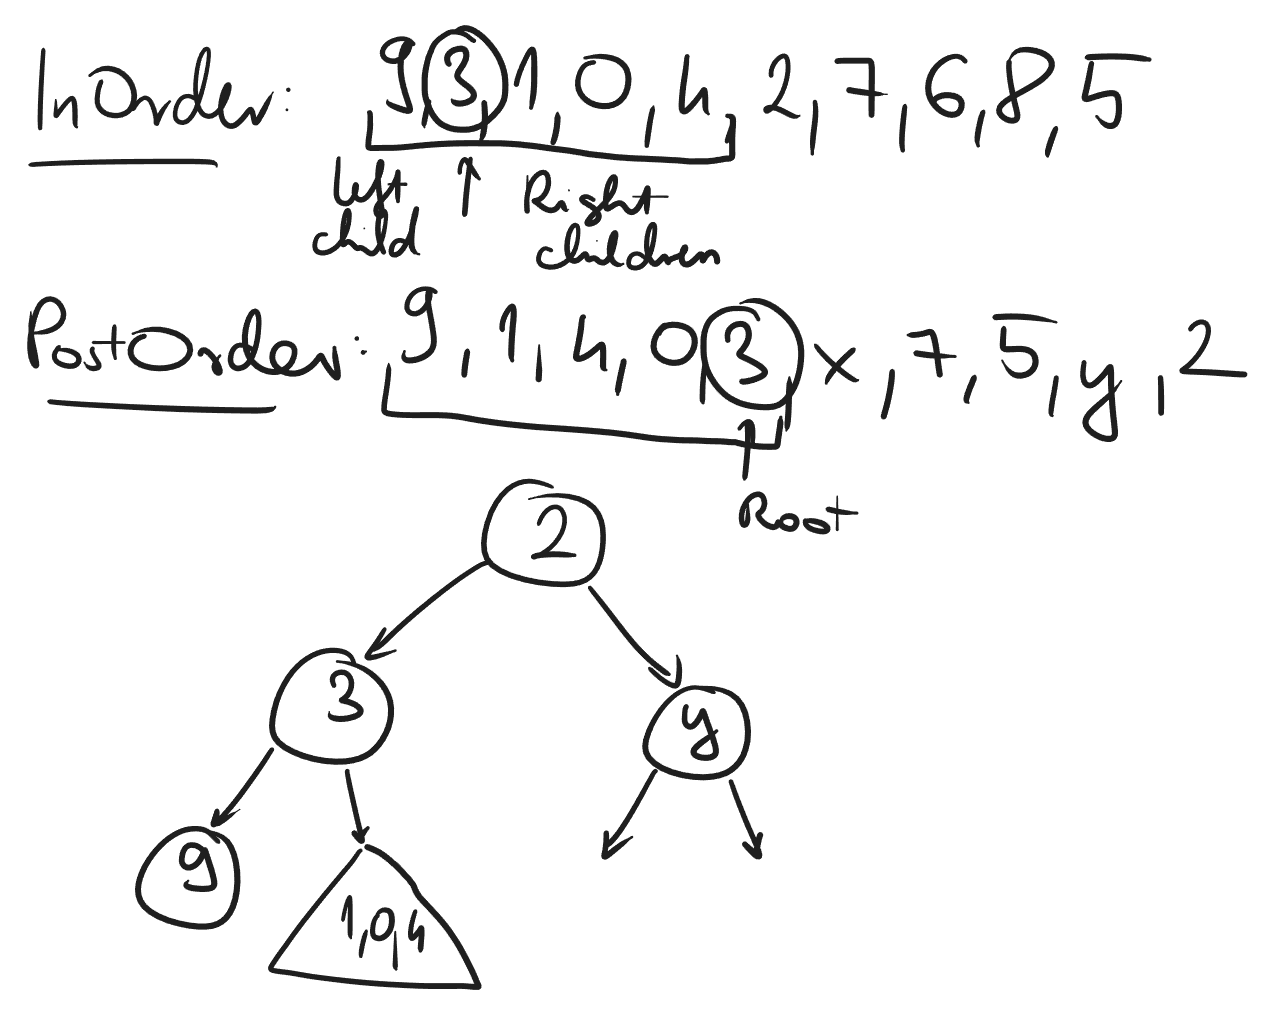 InOrder: 9, 3, 1, 0, 4, 2, 7, 6, 8, 5
left child
Right children
PostOrder: 9, 1, 4, 0, 3, x, 7, 5, y, 2
Root
2
3
y
9
1, 0, 4